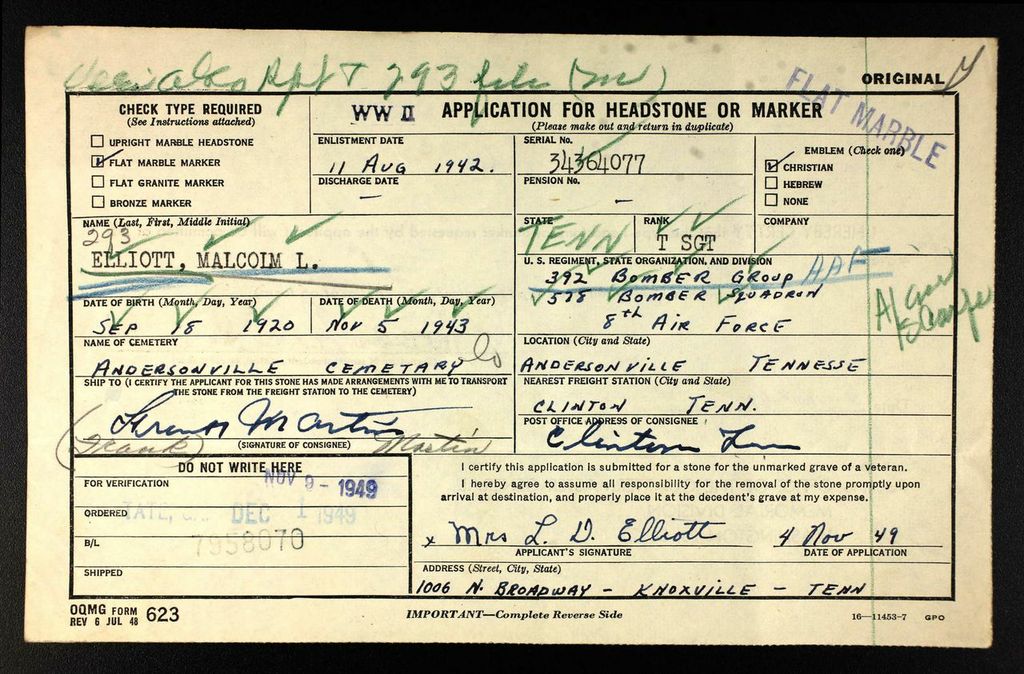 293 file
ORIGINAL
FLAT MARBLE
CHECK TYPE REQUIRED
(See Instructions attached)
UPRIGHT MARBLE HEADSTONE
FLAT MARBLE MARKER
FLAT GRANITE MARKER
BRONZE MARKER
WW II APPLICATION FOR HEADSTONE OR MARKER
(Please make out and return in duplicate)
ENLISTMENT DATE
11 AUG 1942.
DISCHARGE DATE
–
SERIAL No.
34364077
PENSION No.
–
EMBLEM (Check one)
CHRISTIAN
HEBREW
NONE
NAME (Last, First, Middle Initial)
293
ELLIOTT, MALCOLM L.
STATE
TENN
RANK
T SGT
COMPANY
U. S. REGIMENT, STATE ORGANIZATION, AND DIVISION
392 BOMBER GROUP AAF
578 BOMBER SQUADRON
8th AIR FORCE
DATE OF BIRTH (Month, Day, Year)
SEP 18 1920
DATE OF DEATH (Month, Day, Year)
NOV 5 1943
NAME OF CEMETERY
ANDERSONVILLE CEMETARY
LOCATION (City and State)
ANDERSONVILLE TENNESSE
SHIP TO (I CERTIFY THE APPLICANT FOR THIS STONE HAS MADE ARRANGEMENTS WITH ME TO TRANSPORT
THE STONE FROM THE FREIGHT STATION TO THE CEMETERY)
Martin
(Frank) Martin
(SIGNATURE OF CONSIGNEE)
NEAREST FREIGHT STATION (City and State)
CLINTON TENN.
POST OFFICE ADDRESS OF CONSIGNEE
Clinton Tenn
DO NOT WRITE HERE
FOR VERIFICATION
NOV 9 - 1949
ORDERED
DEC 1 1949
B/L
7958070
SHIPPED
I certify this application is submitted for a stone for the unmarked grave of a veteran.
I hereby agree to assume all responsibility for the removal of the stone promptly upon
arrival at destination, and properly place it at the decedent's grave at my expense.
x Mrs L. D. Elliott 4 Nov 49
APPLICANT'S SIGNATURE DATE OF APPLICATION
ADDRESS (Street, City, State)
1006 N. BROADWAY - KNOXVILLE - TENN
OQMG FORM 623
REV 6 JUL 48
IMPORTANT—Complete Reverse Side
16—11453-7 GPO